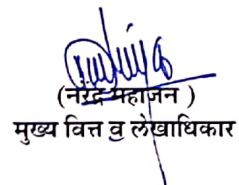 (नरेंद्र महाजन )
मुख्य वित्त व लेखाधिकार